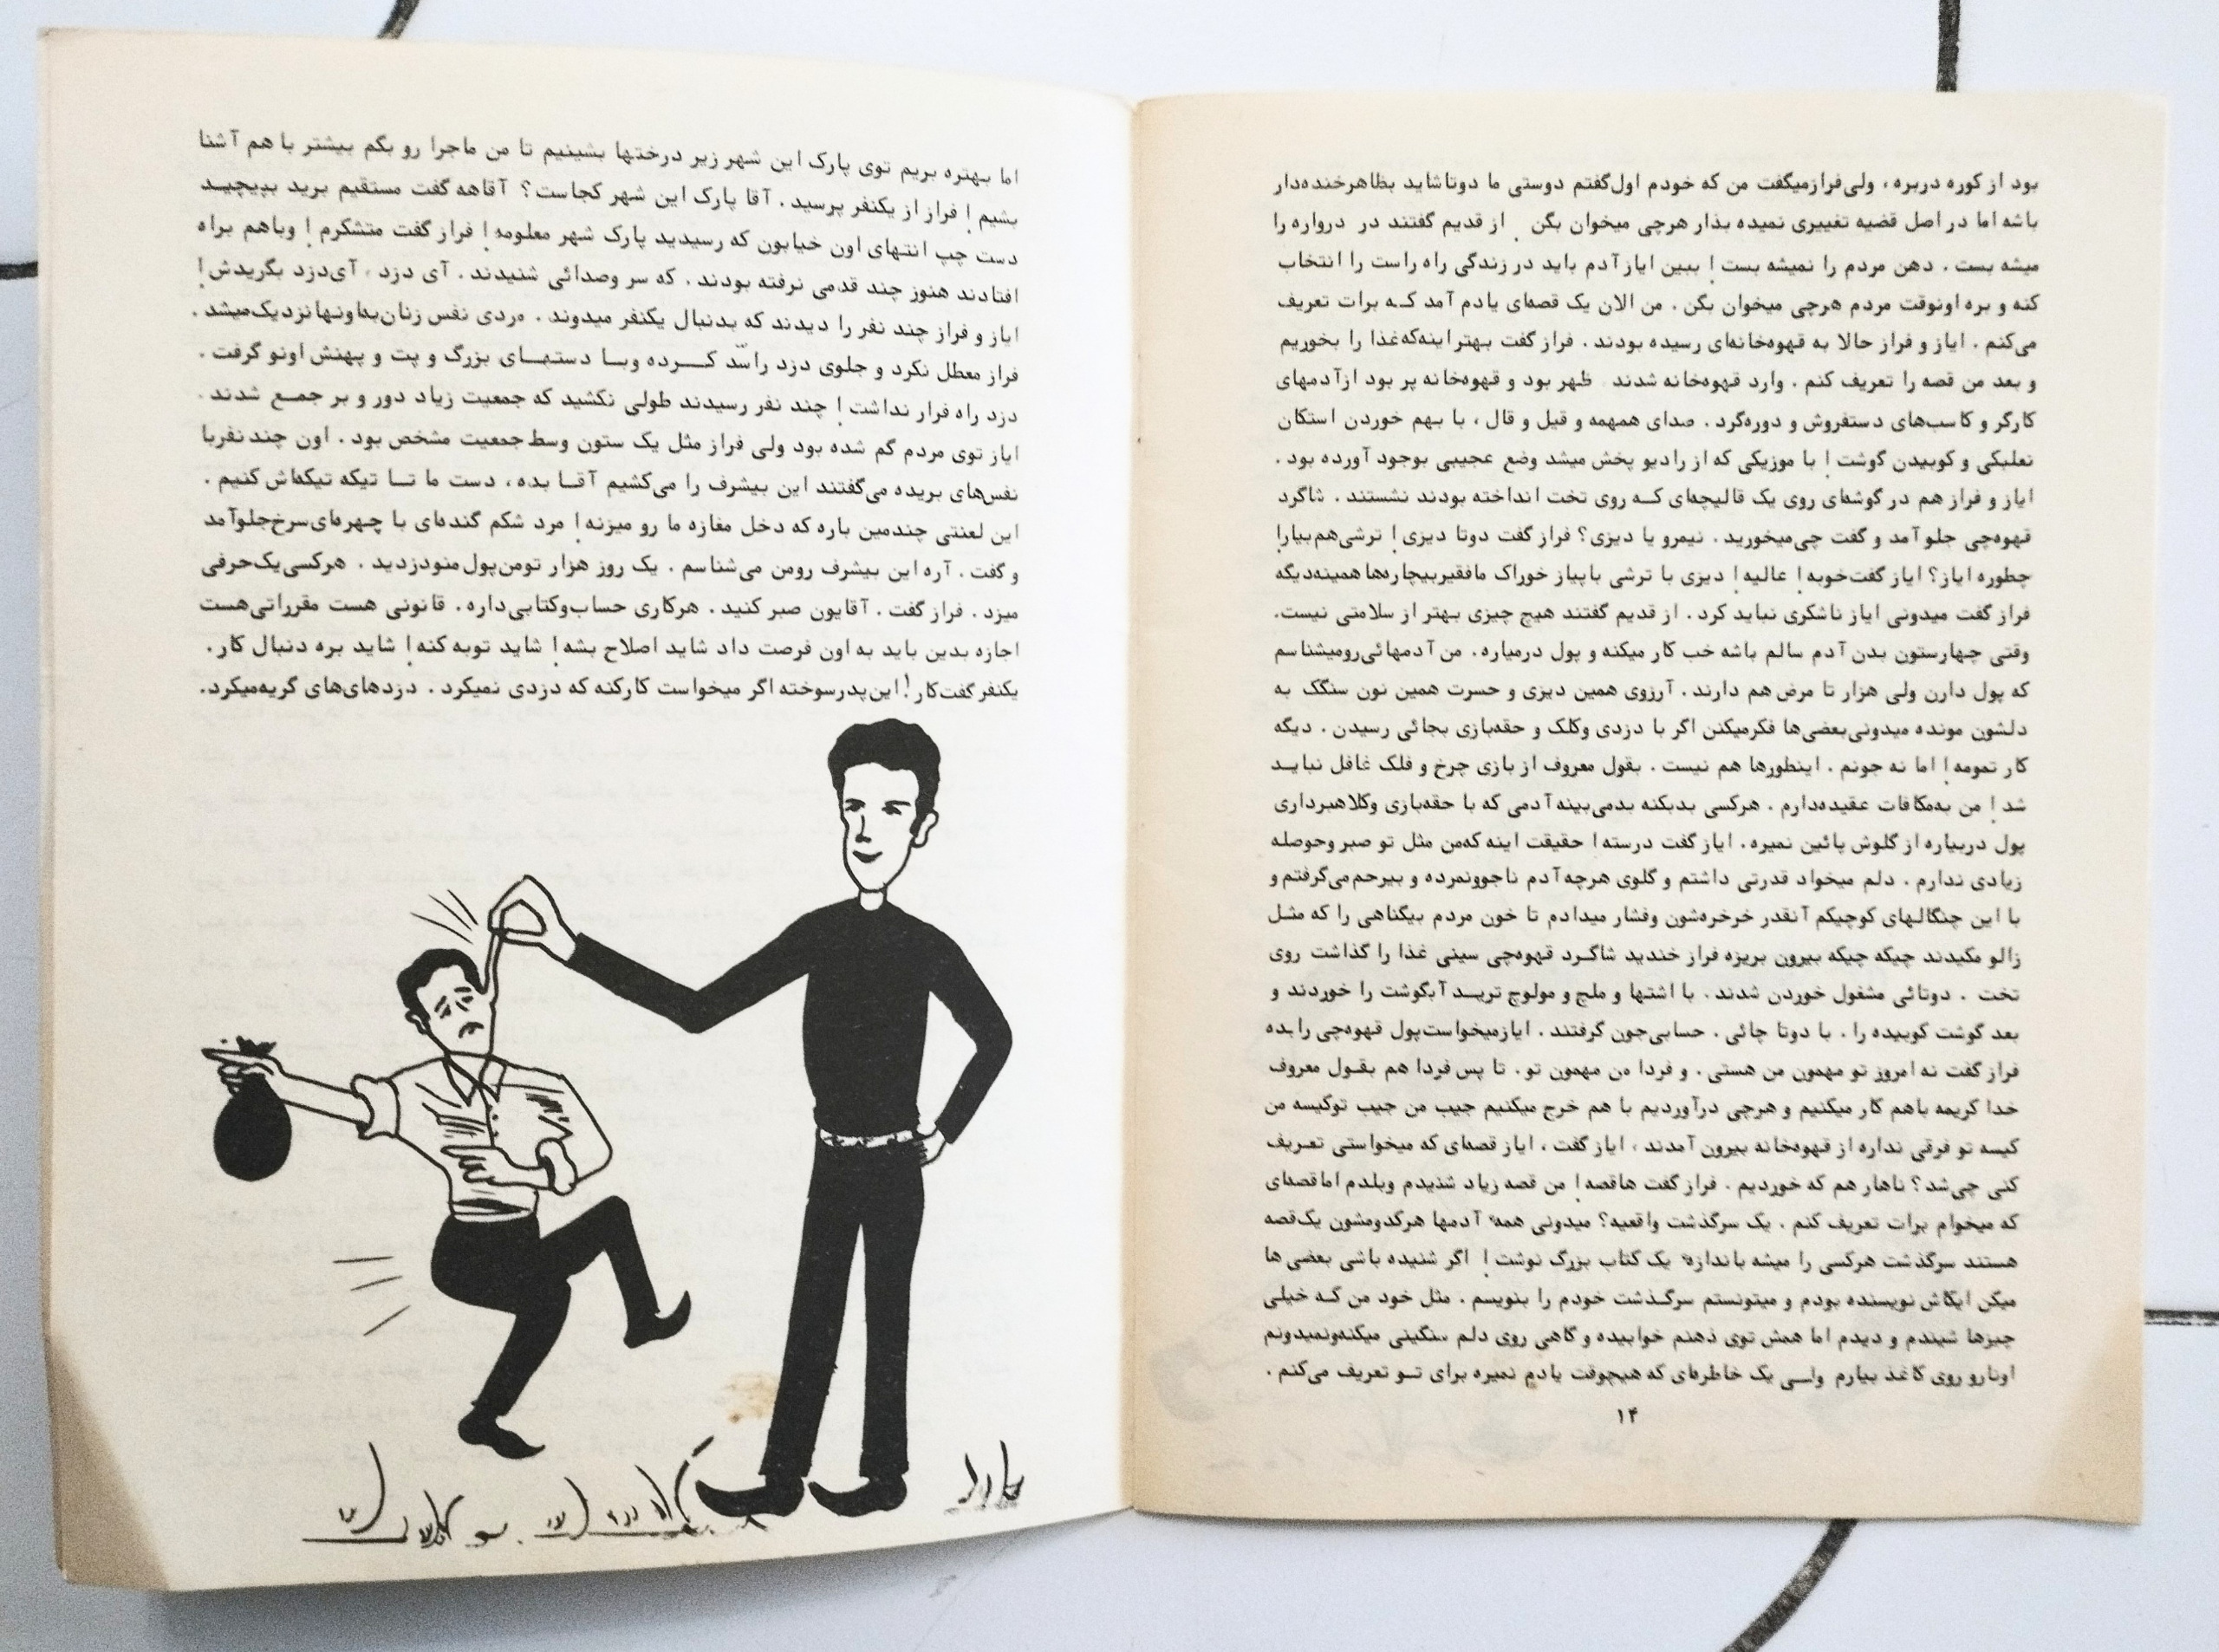 بود از کوره دربره، ولی فراز میگفت من که خودم اول گفتم دوستی ما دوتا شاید بظاهر خنده‌دار
باشه اما در اصل قضیه تغییری نمیده بذار هرچی میخوان بگن . از قدیم گفتند در درواره را
میشه بست . دهن مردم را نمیشه بست! ببین ایاز آدم باید در زندگی راه راست را انتخاب
کنه و بره اونوقت مردم هرچی میخوان بگن . من الان یک قصه‌ای یادم آمد کـه برات تعریف
می‌کنم . ایاز و فراز حالا به قهوه‌خانه‌ای رسیده بودند . فراز گفت بهتر اینه‌که غذا را بخوریم
و بعد من قصه را تعریف کنم . وارد قهوه‌خانه شدند . ظهر بود و قهوه‌خانه پر بود از آدمهای
کارگر و کاسب‌های دستفروش و دوره‌گرد . صدای همهمه و قیل و قال ، با بهم خوردن استکان
نعلبکی و کوبیدن گوشت! با موزیکی که از رادیو پخش میشد وضع عجیبی بوجود آورده بود .
ایاز و فراز هم در گوشه‌ای روی یک قالیچه‌ای کـه روی تخت انداخته بودند نشستند . شاگرد
قهوه‌چی جلو آمد و گفت چی‌میخورید . نیمرو یا دیزی؟ فراز گفت دوتا دیزی! ترشی هم بیار!
چطوره ایاز؟ ایاز گفت خوبه! عالیه! دیزی با ترشی با پیاز خوراک ما فقیر بیچاره‌ها همینه دیگه
فراز گفت میدونی ایاز ناشکری نباید کرد . از قدیم گفتند هیچ چیزی بهتر از سلامتی نیست.
وقتی چهارستون بدن آدم سالم باشه خب کار میکنه و پول درمیاره. من آدمهائی رو میشناسم
که پول دارن ولی هزار تا مرض هم دارند . آرزوی همین دیزی و حسرت همین نون سنگک به
دلشون مونده میدونی بعضی‌ها فکر میکنن اگر با دزدی و کلک و حقه‌بازی بجائی رسیدن . دیگه
کار تمومه! اما نه جونم . اینطورها هم نیست . بقول معروف از بازی چرخ و فلک غافل نبایـد
شد! من به‌مکافات عقیده‌دارم . هرکسی بدبکنه بدمی‌بینه آدمی که با حقه‌بازی و کلاهبرداری
پول دربیاره از گلوش پائین نمیره. ایاز گفت درسته! حقیقت اینه که‌من مثل تو صبر و حوصله
زیادی ندارم . دلم میخواد قدرتی داشتم و گلوی هرچه آدم ناجوونمرده و بیرحم می‌گرفتم و
با این چنگالهای کوچیکم آنقدر خرخره‌شون و فشار میدادم تا خون مردم بیگناهی را که مثـل
زالو مکیدند چیکه چیکه بیرون بریزه فراز خندید شاگـرد قهوه‌چی سینی غذا را گذاشت روی
تخت . دوتائی مشغول خوردن شدند . با اشتها و ملچ و مولوچ تریـد آبگوشت را خوردند و
بعد گوشت کوبیده را . با دوتا چائی . حسابی‌جون گرفتند . ایاز میخواست پول قهوه‌چی را بده
فراز گفت نه امروز تو مهمون من هستی . و فردا من مهمون تو . تا پس فردا هم بقـول معروف
خدا کریمه با هم کار میکنیم و هرچی درآوردیم با هم خرج میکنیم جیب من جیب تو کیسه من
کیسه تو فرقی نداره از قهوه‌خانه بیرون آمدند ، ایاز گفت ، ایاز قصه‌ای که میخواستی تعـریف
کنی چی‌شد؟ ناهار هم که خوردیم . فراز گفت ها قصه! من قصه زیاد شنیدم و بلدم اما قصه‌ای
که میخوام برات تعریف کنم . یک سرگذشت واقعیه؟ میدونی همهٔ آدمها هرکدومشون یک‌قصه
هستند سرگذشت هرکسی را میشه باندازهٔ یک کتاب بزرگ نوشت! اگر شنیده باشی بعضی ها
میکن ایکاش نویسنده بودم و میتونستم سرگـذشت خودم را بنویسم . مثل خود من کـه خیلی
چیزها شیندم و دیدم اما همش توی ذهنم خوابیده و گاهی روی دلم سنگینی میکنه‌ونمیدونم
اونارو روی کاغذ بیارم واسـی یک خاطره‌ای که هیچوقت یادم نمیره برای تـو تعریف می‌کنم .
۱۴
اما بهتره بریم توی پارک این شهر زیر درختها بشینیم تا من ماجرا رو بگم بیشتر با هم آشنا
بشیم! فراز از یکنفر پرسید . آقا پارک این شهر کجاست؟ آقاهه گفت مستقیم برید بپیچیـد
دست چپ انتهای اون خیابون که رسیدید پارک شهر معلومه! فراز گفت متشکرم! و باهم براه
افتادند هنوز چند قدمی نرفته بودند . که سر و صدائی شنیدند . آی دزد ، آی‌دزد بگریدش!
ایاز و فراز چند نفر را دیدند که بدنبال یکنفر میدوند . مردی نفس زنان به‌اونها نزدیک‌میشد .
فراز معطل نکرد و جلوی دزد را سّد کــرده وبـا دستهـای بزرگ و پت و پهنش اونو گرفت .
دزد راه فرار نداشت! چند نفر رسیدند طولی نکشید که جمعیت زیاد دور و بر جمـع شدند .
ایاز توی مردم گم شده بود ولی فراز مثل یک ستون وسط جمعیت مشخص بود . اون چند نفر با
نفس‌های بریده می‌گفتند این بیشرف را می‌کشیم آقـا بده ، دست ما تـا تیکه تیکه‌اش کنیم .
این لعنتی چندمین باره که دخل مغازه ما رو میزنه! مرد شکم گنده‌ای با چهره‌ای‌سرخ‌جلوآمد
و گفت . آره این بیشرف رو من می‌شناسم . یک روز هزار تومن‌پول‌منو دزدید . هرکسی‌یک‌حرفی
میزد . فراز گفت . آقایون صبر کنید . هرکاری حساب‌و‌کتابی‌داره . قانونی هست مقرراتی‌هست
اجازه بدین باید به اون فرصت داد شاید اصلاح بشه! شاید توبه کنه! شاید بره دنبال کار .
یکنفر گفت کار! این‌پدرسوخته اگر میخواست کارکنه که دزدی نمیکرد . دزدهای‌های گریه‌میکرد.